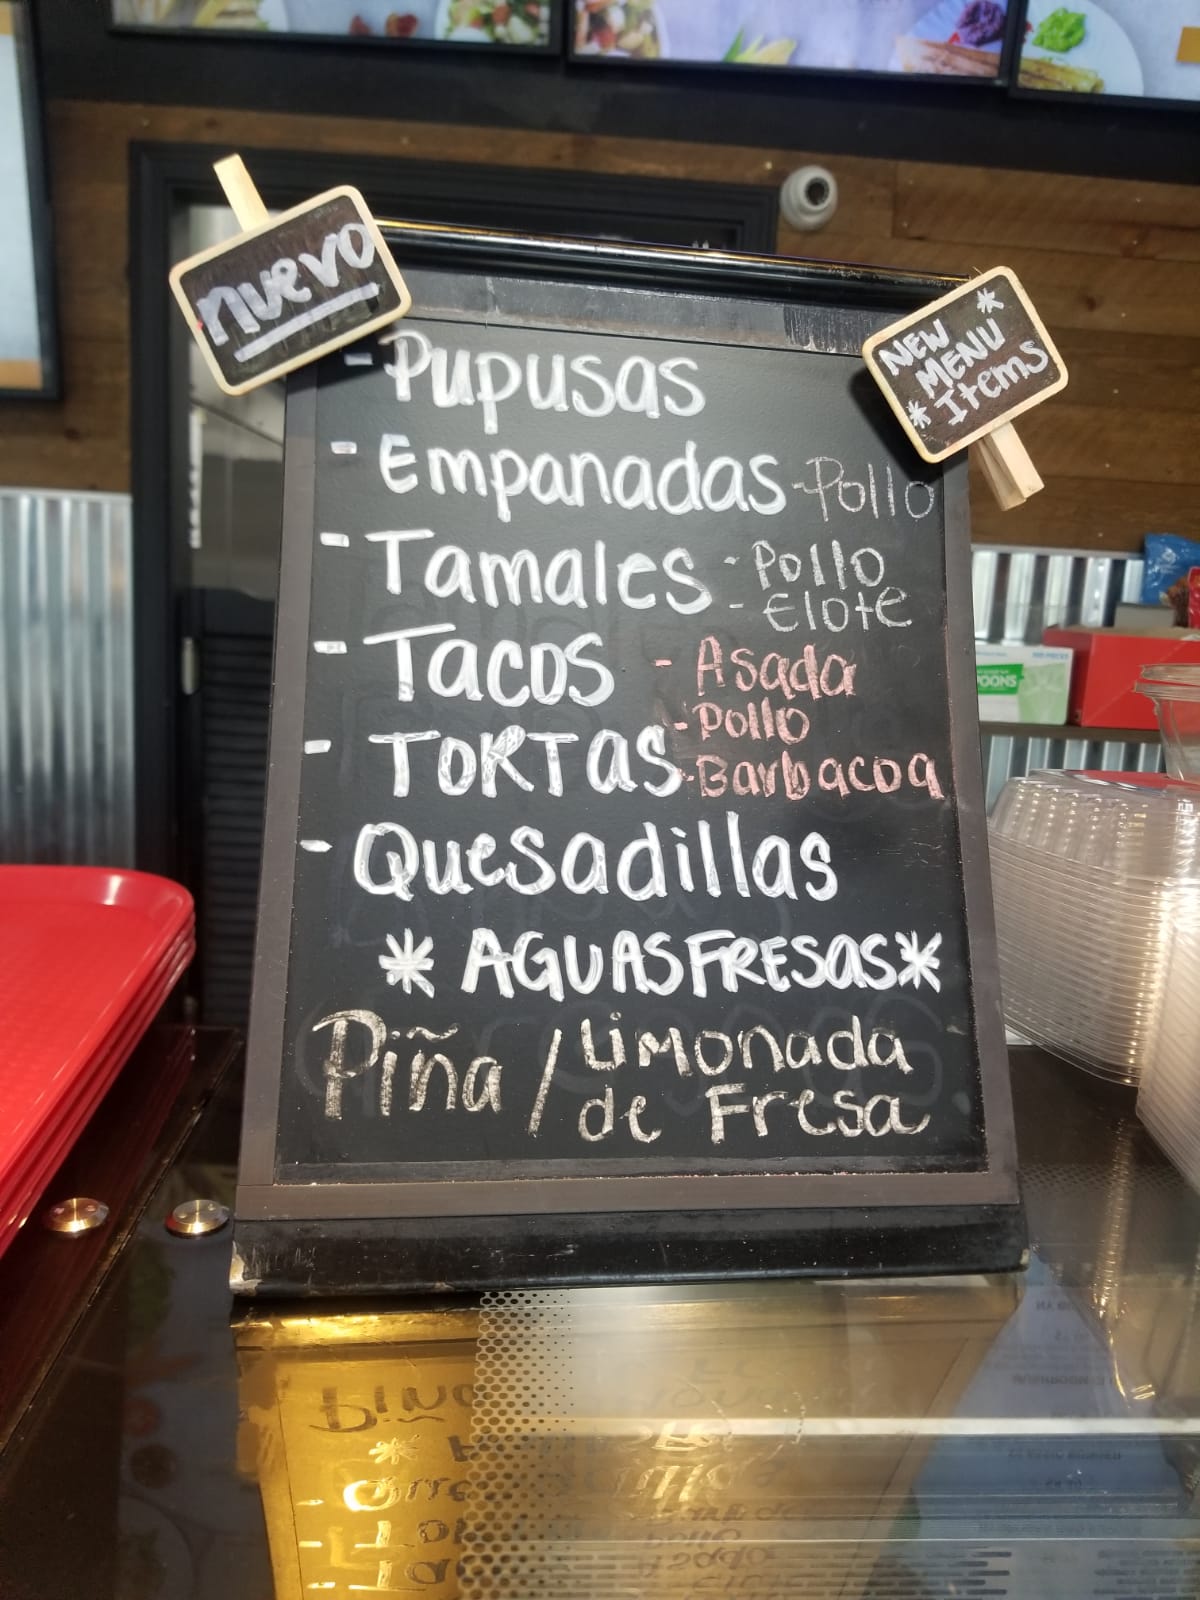 nuevo
* NEW
MENU
* Items
- Pupusas
- Empanadas - Pollo
- Tamales - Pollo
- Elote
- Tacos - Asada
- Pollo
- TORTas - Barbacoa
- Quesadillas
* AGUAS FRESAS *
Piña / Limonada
de Fresa
SPOONS